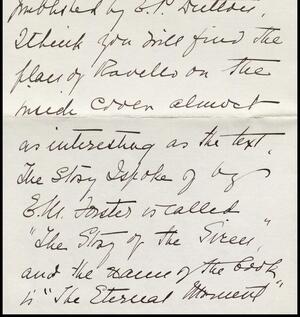 published by E.P. Dutton,
I think you will find the
place of Ravello on the
inside cover almost
as interesting as the text.
The Story I spoke of by
E.M. Forster is called
"The Story of the Siren,"
and the name of the book
is "The Eternal Moment"